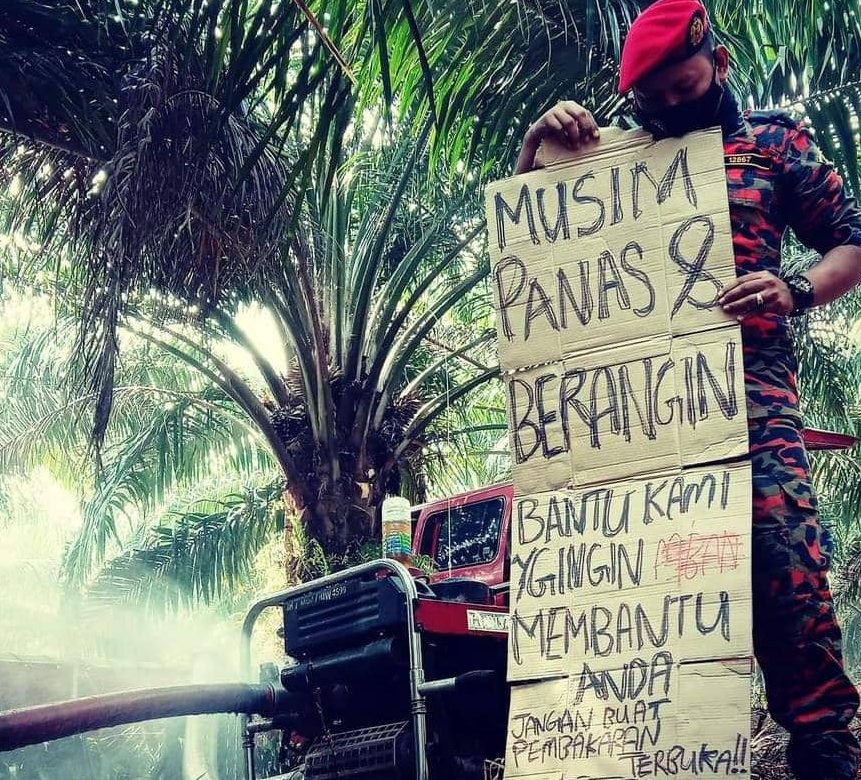 MUSIM
PANAS &
BERANGIN
BANTU KAMI
YG INGIN
MEMBANTU
ANDA
JANGAN BUAT
PEMBAKARAN
TERBUKA!!
12867